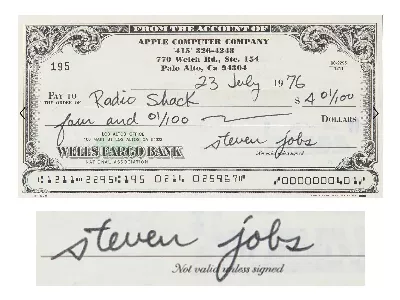 FROM THE ACCOUNT OF
APPLE COMPUTER COMPANY
'415' 326-4248
770 Welch Rd., Ste. 154
Palo Alto, Ca 94304
195
23 July 1976
PAY TO
THE ORDER OF Radio Shack $ 4 01/100
four and 01/100 DOLLARS
LOS ALTOS OFFICE
WELLS FARGO BANK
NATIONAL ASSOCIATION
steven jobs
Not valid unless signed
⑆1211⑉2295⑆195 0214 025967⑈ ⑈0000000401⑈
steven jobs
Not valid unless signed